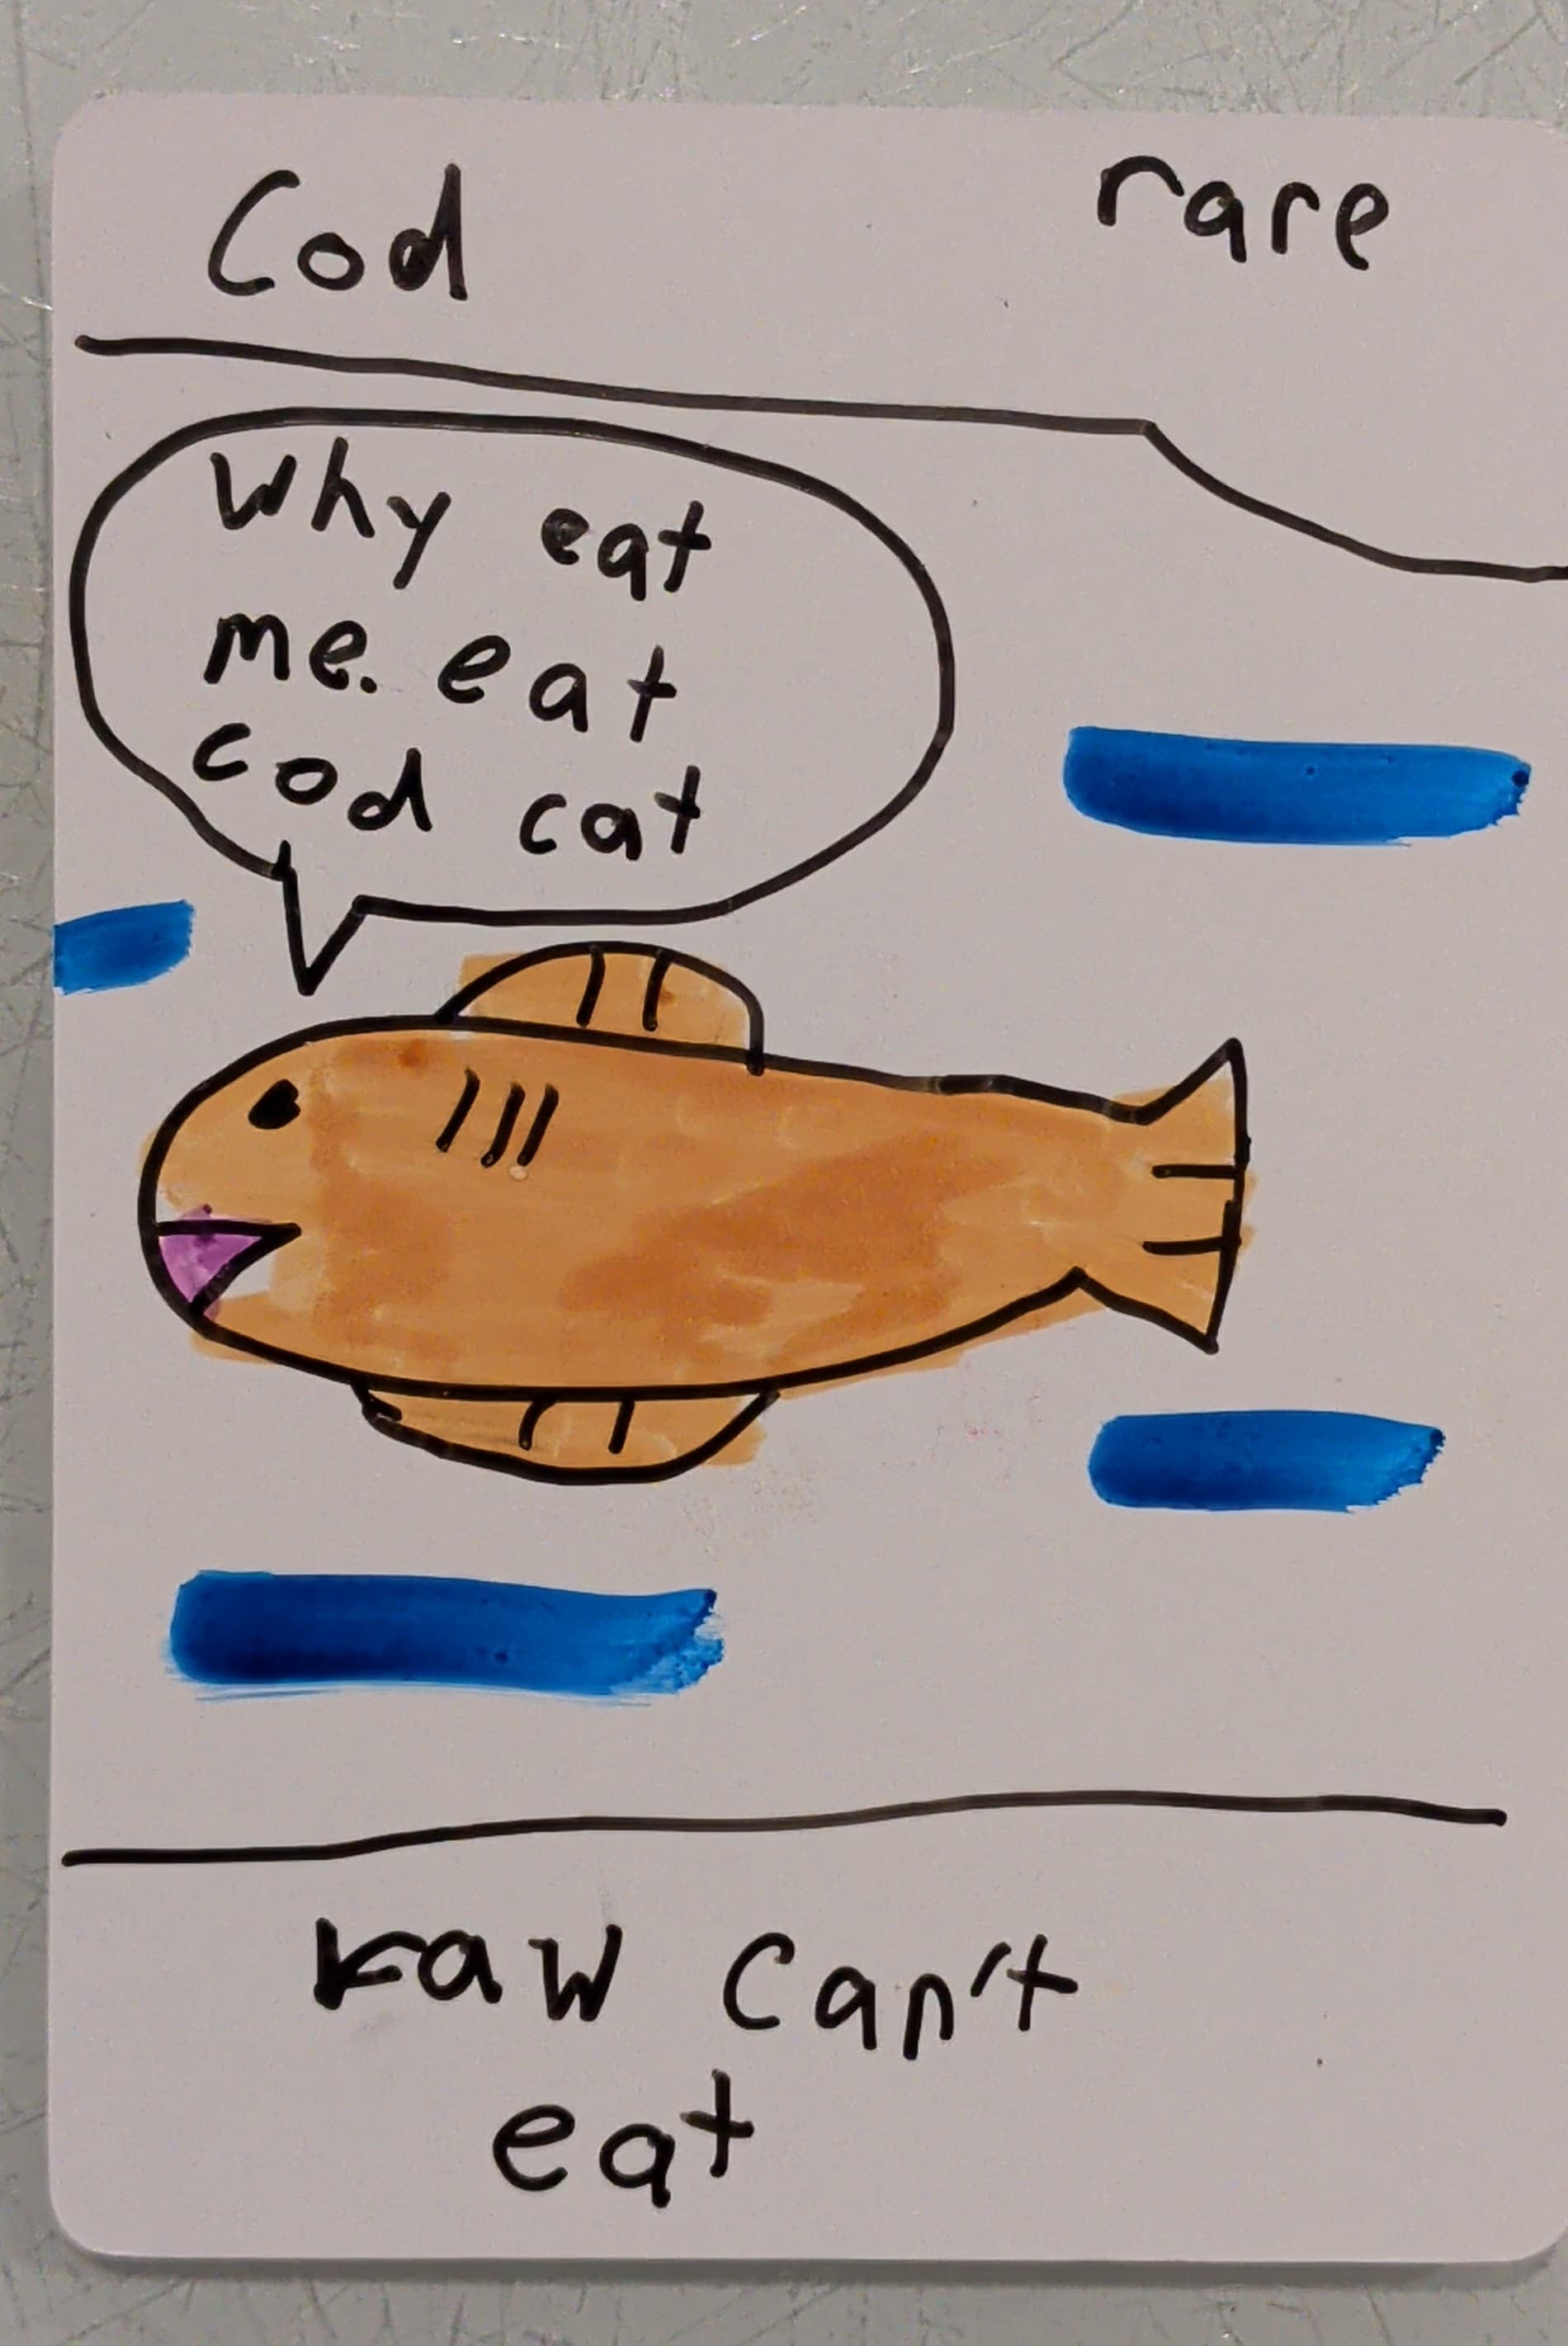 Cod rare
Why eat
me. eat
cod cat
raw can't
eat